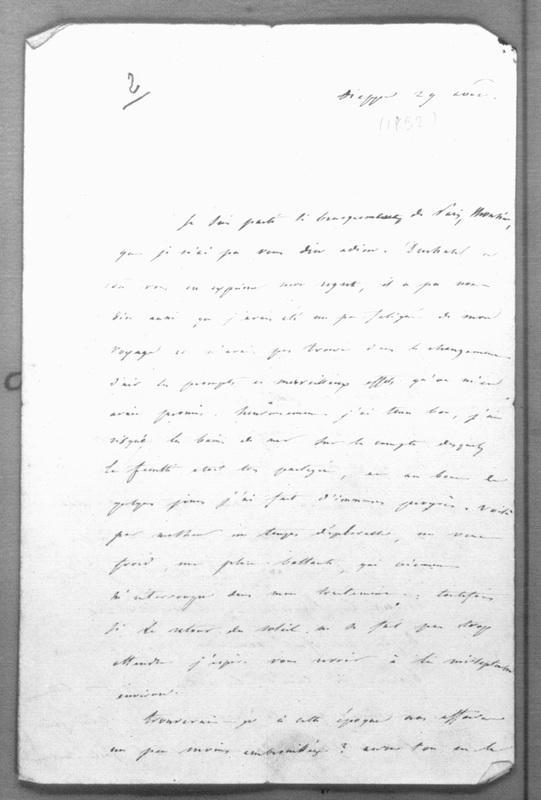 2
Dieppe 29 août.
(1852)
Je suis parti si brusquement de Paris, Monsieur,
que je n'ai pu vous dire adieu. Duchatel a
dû vous en exprimer mon regret, il a pu vous
dire aussi que j'avais été un peu fatigué de mon
voyage et n'avais pas trouvé dans le changement
d'air les prompts et merveilleux effets qu'on m'en
avait promis. heureusement j'ai tenu bon, j'ai
risqué les bains de mer sur le compte desquels
la faculté était très partagée, et au bout de
quelques jours j'ai fait d'immenses progrès. Voilà
par malheur un temps déplorable, un vent
froid, une pluie battante, qui viennent
m'interrompre dans mon traitement : toutefois
si le retour du soleil ne se fait pas trop
attendre j'espère vous revoir à la mi septembre
environ.
trouverai-je à cette époque nos affaires
un peu moins embrouillées ? aura-t-on eu le